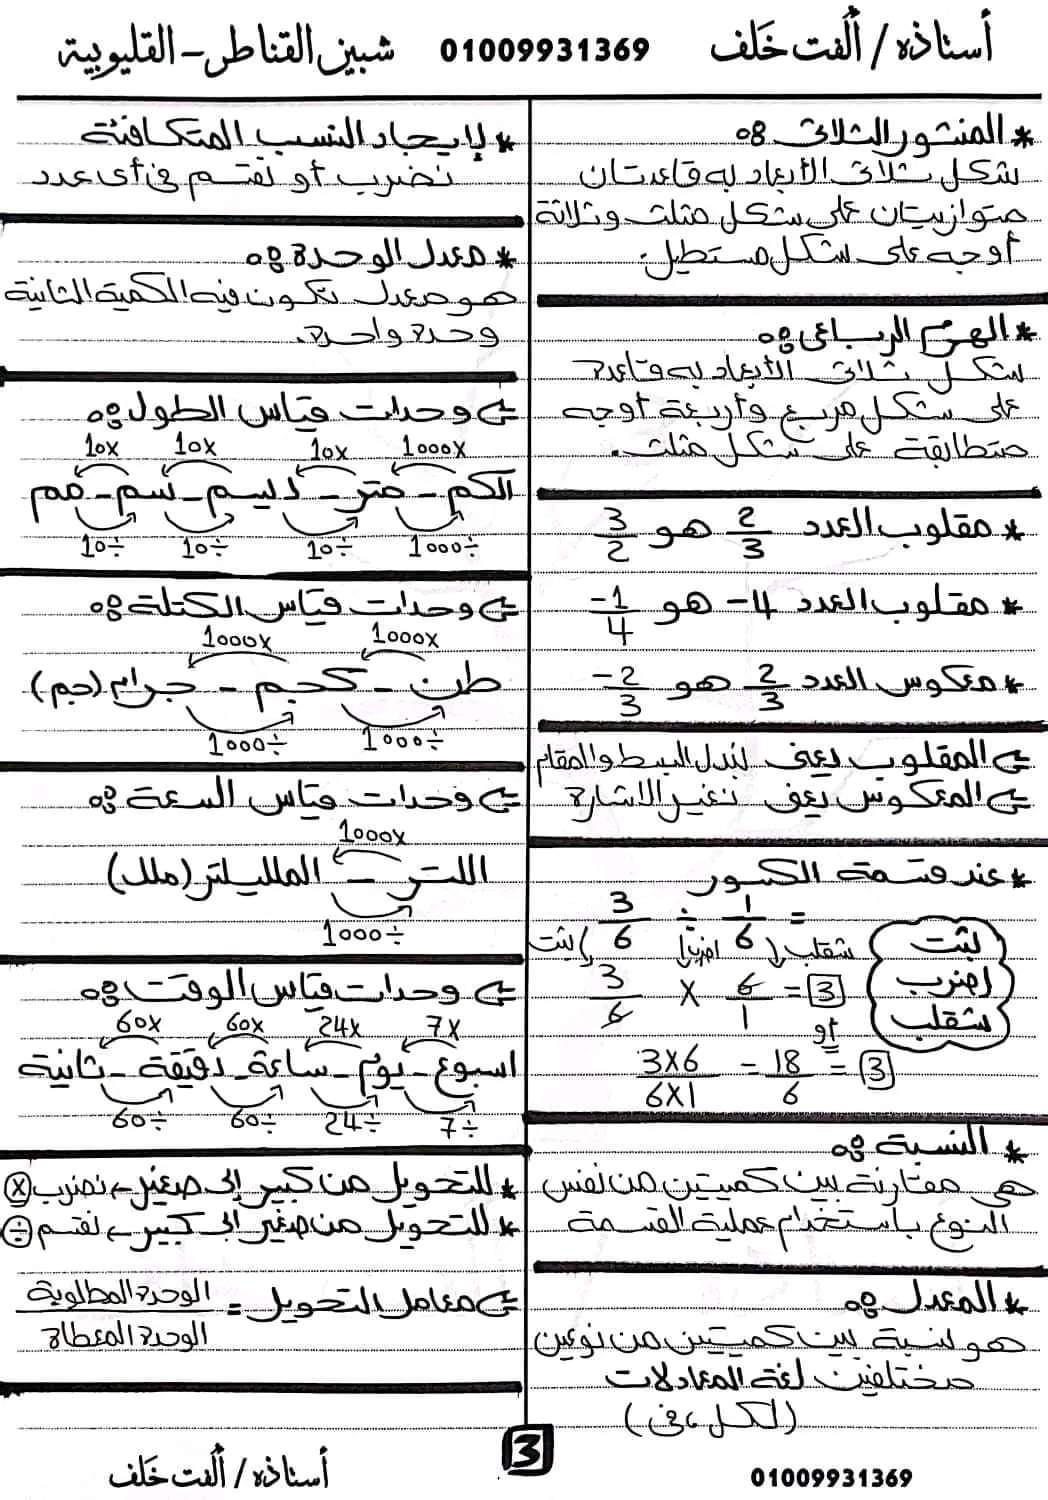 أستاذه / ألفت خَلف 01009931369 شبين القناطر - القليوبية
* المنشور الثلاثى :
شكل ثلاثى الأبعاد به قاعدتان
متوازيتان على شكل مثلث وثلاثة
أوجه على شكل مستطيل.
* الهرم الرباعى :
شكل ثلاثى الأبعاد به قاعدة
على شكل مربع وأربعة أوجه
متطابقة على شكل مثلث.
* مقلوب العدد 2/3 هو 3/2
* مقلوب العدد 4- هو -1/4
* معكوس العدد 2/3 هو -2/3
المقلوب يعنى نبدل البسط والمقام
المعكوس يعنى نغير الاشارة
* عند قسمة الكسور
3/6 ÷ 1/6 =
ثبت اضرب شقلب
3/6 × 6/1 = 3
أو
3×6/6×1 = 18/6 = 3
ثبت
اضرب
شقلب
* النسبة :
هى مقارنة بين كميتين من نفس
النوع باستخدام عملية القسمة
* المعدل :
هو نسبة بين كميتين من نوعين
مختلفين لغة المعادلات
(لكل ، فى)
* لإيجاد النسب المتكافئة
نضرب أو نقسم فى أى عدد
* معدل الوحدة :
هو معدل تكون فيه الكمية الثانية
وحدة واحدة.
وحدات قياس الطول :
1000× 10× 10× 10×
الكم - متر - ديسم - سم - مم
1000÷ 10÷ 10÷ 10÷
وحدات قياس الكتلة :
1000× 1000×
طن - كجم - جرام (جم)
1000÷ 1000÷
وحدات قياس السعة :
1000×
اللتر - الملليلتر (ملل)
1000÷
وحدات قياس الوقت :
7× 24× 60× 60×
اسبوع - يوم - ساعة - دقيقة - ثانية
7÷ 24÷ 60÷ 60÷
* للتحويل من كبير إلى صغير ← نضرب ×
* للتحويل من صغير إلى كبير ← نقسم ÷
معامل التحويل = الوحدة المطلوبة
الوحدة المعطاة
3
01009931369 أستاذه / ألفت خَلف